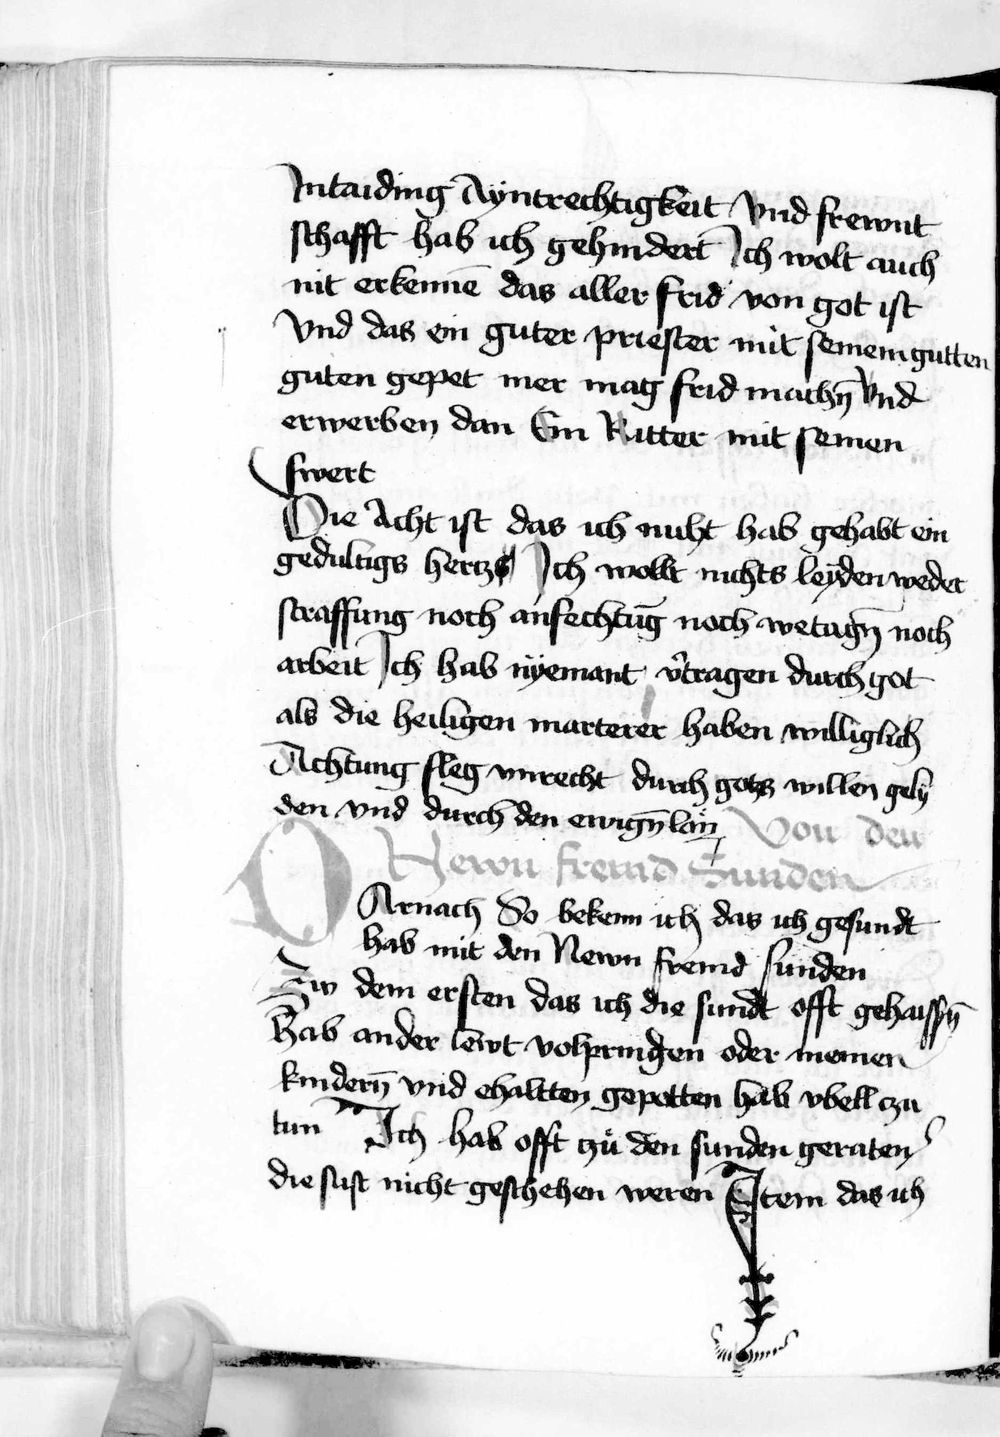 Intaiding Ayntrechtigkeit vnd frewnt
schafft hab ich gehindert Ich wolt auch
nit erkennē das aller frid von got ist
Vnd das ein guter priester mit seinem gutten
guten gepet mer mag frid machn̄ vnd
erwerben dan Ein Ritter mit seinen
swert
Die Acht ist das ich nicht hab gehabt ein
gedultigs hertz Ich wolt nichts leyden weder
straffung noch anfechtūg noch wetagn̄ noch
arbeit Ich hab nyemant v̄tragen durch got
als die heiligen marterer haben williglich
Achtung sleg vnrecht durch gotz willen gely
den vnd durch den ewign̄ lon Von den
Newn fremd Sunden
DArnach So bekenn ich das ich gesundt
hab mit den Newn fremd sunden
Zw dem ersten das ich die sundt offt gehaissn̄
hab ander lewt volpringen oder meinen
kindern̄ vnd ehaltten gepotten hab vbell czu
tun Ich hab offt czu den sunden geraten
die sust nicht geschehen weren Item das ich